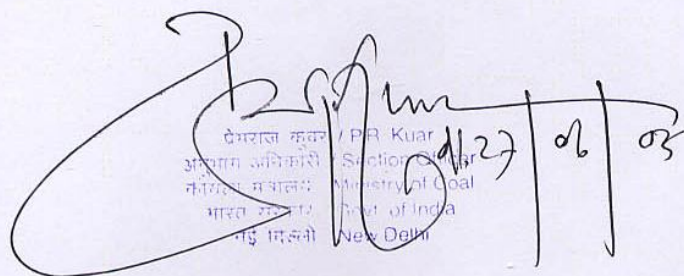 प्रेमराज कुवर / P.R. Kuar
अनुभाग अधिकारी / Section Officer
कोयला मंत्रालय / Ministry of Coal
भारत सरकार / Govt. of India
नई दिल्ली / New Delhi
27/06/03